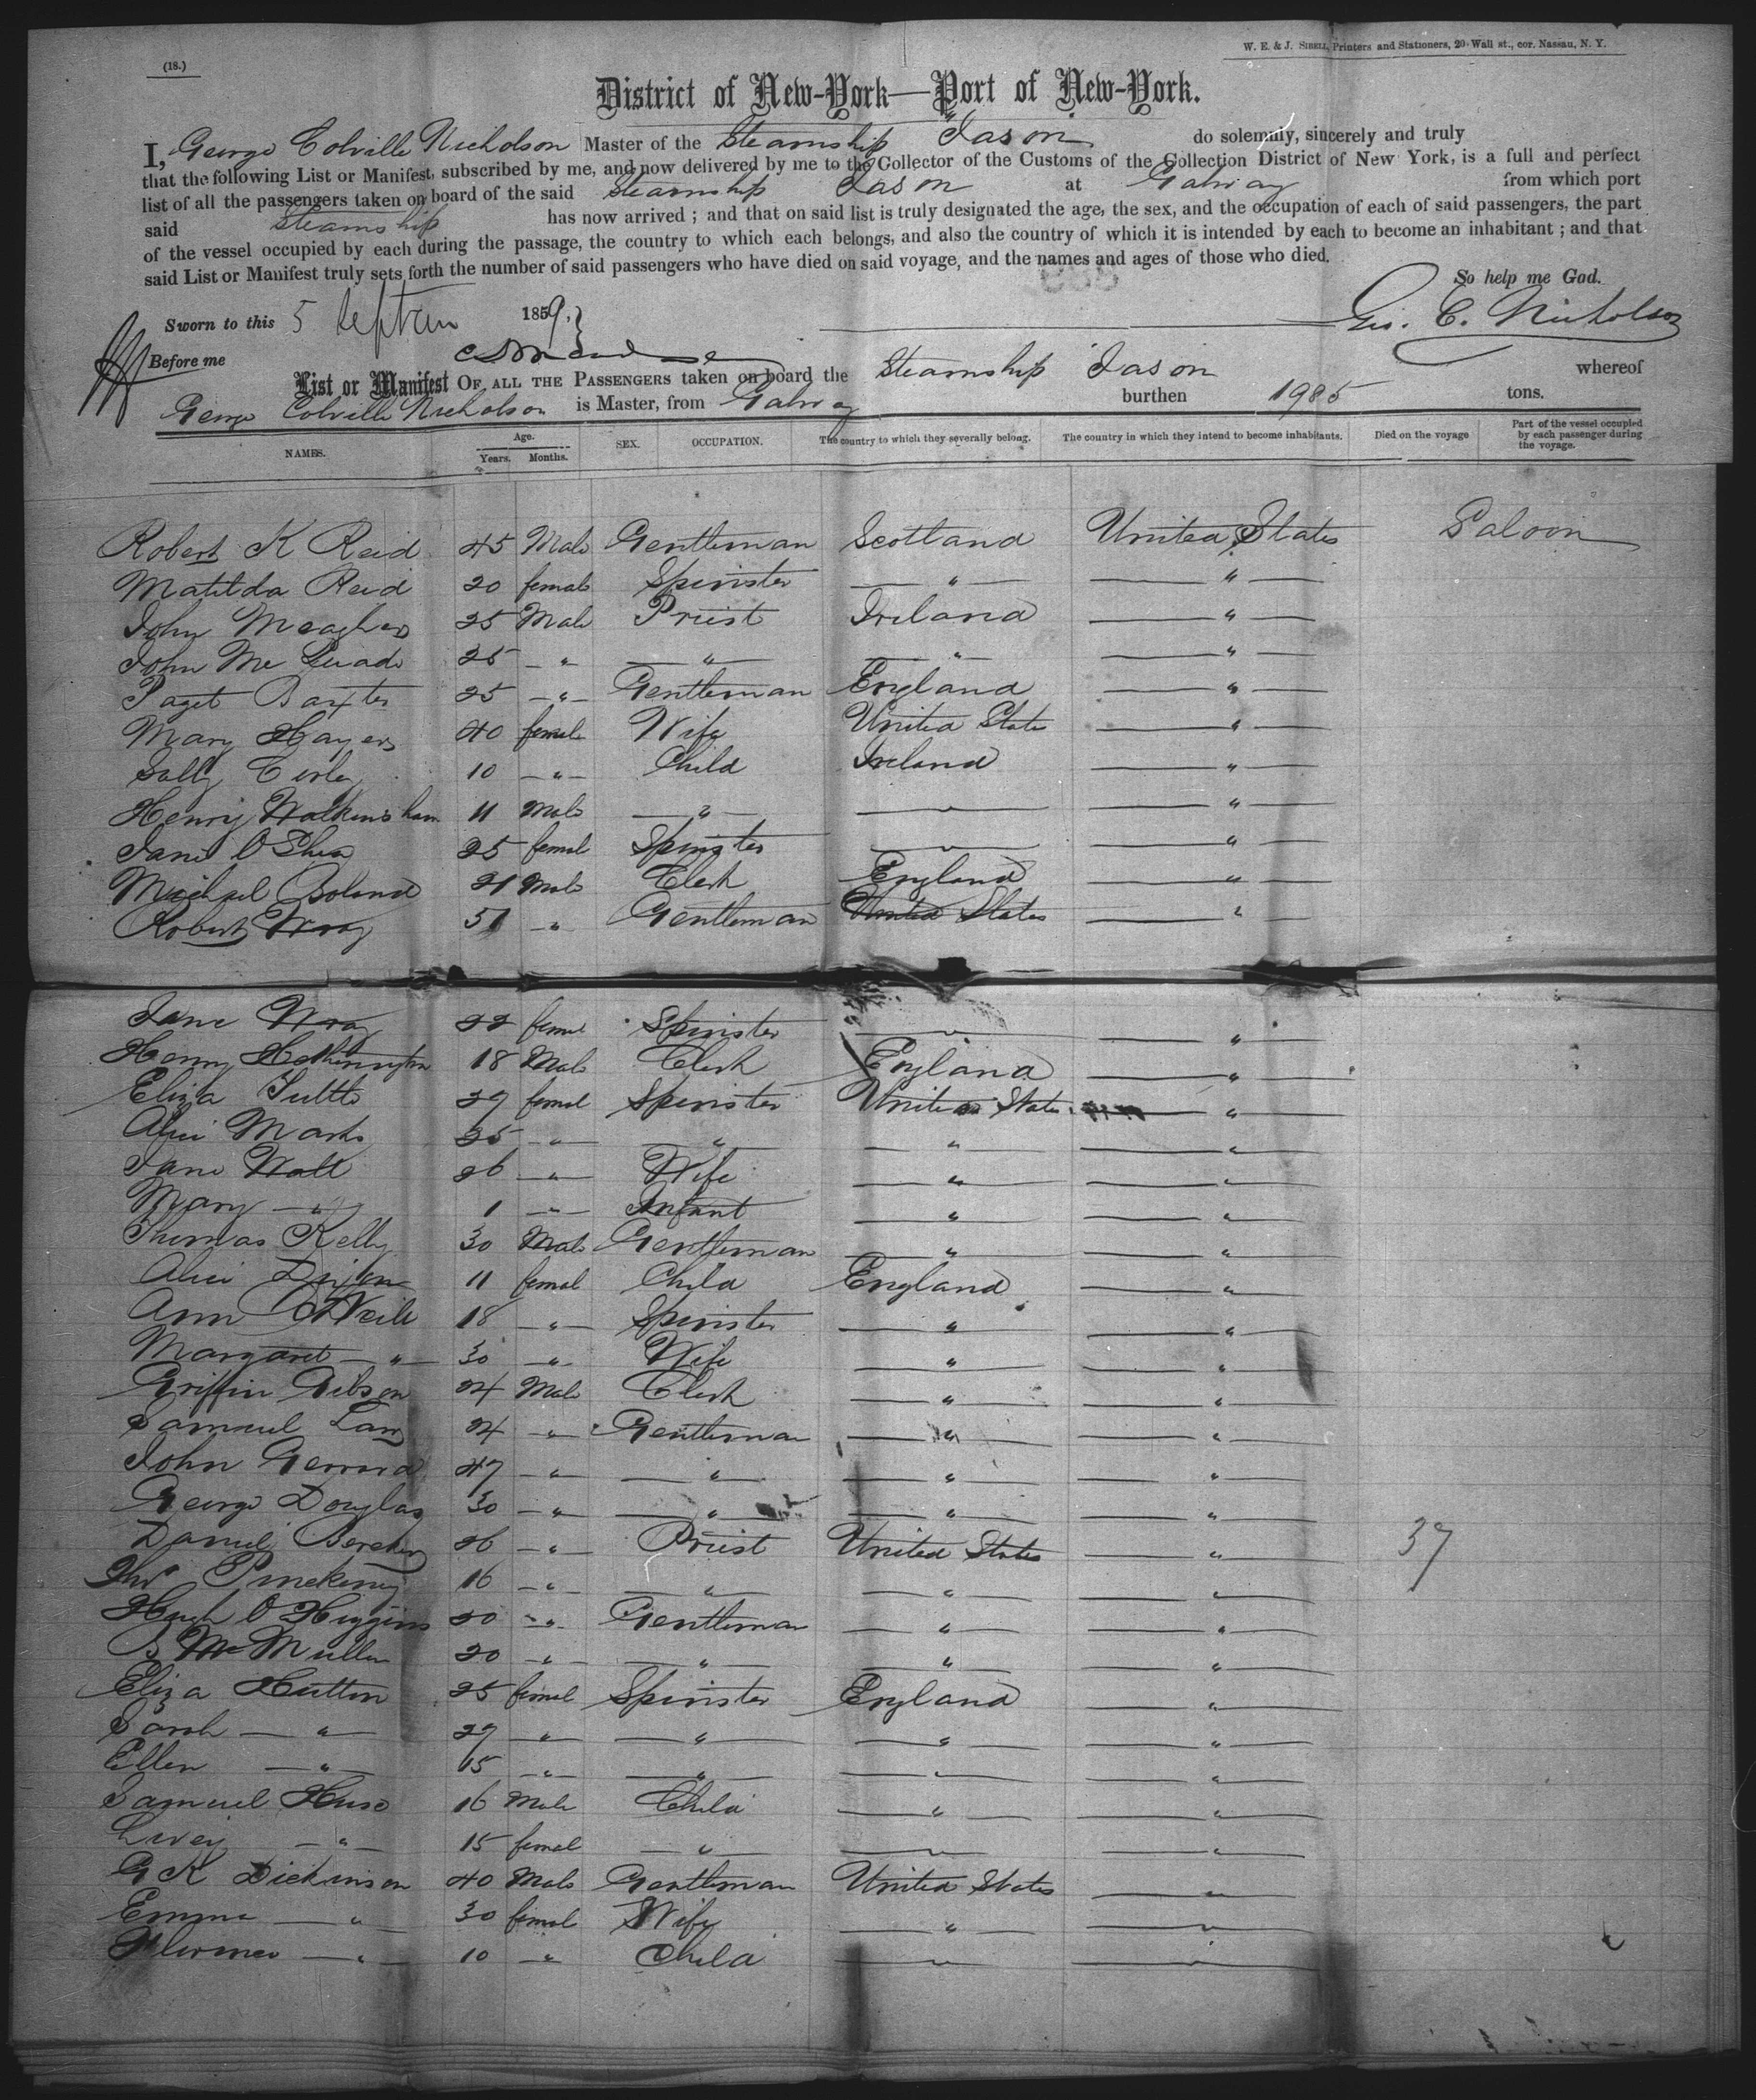 (18.)
W. E. & J. Sibell, Printers and Stationers, 20 Wall st., cor. Nassau, N. Y.
District of New-York—Port of New-York.
I, George Colville Nicholson Master of the Steamship "Jason do solemnly, sincerely and truly
that the following List or Manifest, subscribed by me, and now delivered by me to the Collector of the Customs of the Collection District of New York, is a full and perfect
list of all the passengers taken on board of the said Steamship Jason at Galway from which port
said Steamship has now arrived ; and that on said list is truly designated the age, the sex, and the occupation of each of said passengers, the part
of the vessel occupied by each during the passage, the country to which each belongs, and also the country of which it is intended by each to become an inhabitant ; and that
said List or Manifest truly sets forth the number of said passengers who have died on said voyage, and the names and ages of those who died.
So help me God.
Sworn to this 5 1859.
Geo. C. Nicholson
Before me
List or Manifest OF ALL THE PASSENGERS taken on board the Steamship Jason whereof
George Colville Nicholson is Master, from Galway burthen 1985 tons.
NAMES. Age. Years. Months. SEX. OCCUPATION. The country to which they severally belong. The country in which they intend to become inhabitants. Died on the voyage Part of the vessel occupied by each passenger during the voyage.
Robert K Reid 45 Male Gentleman Scotland United States Saloon
Matilda Reid 20 female Spinster " "
John Meagher 25 Male Priest Ireland "
John Mc 25 " " " "
Paget Baxter 25 " Gentleman England "
Mary Hayes 40 female Wife United States "
Sally 10 " Child Ireland "
Henry Walkinsham 11 Male " " "
Jane O Shea 25 female Spinster " "
Michael Boland 21 Male Clerk England "
Robert Wray 51 " Gentleman United States "
Jane Wray 22 female Spinster " "
Henry Hetherington 18 Male Clerk England "
Eliza Tuttle 27 female Spinster United States "
Alice Marks 25 " " " "
Jane Wall 26 " Wife " "
Mary " 1 " Infant " "
Thomas Kelly 30 Male Gentleman " "
Alice 11 female Child England "
Ann O'Neill 18 " Spinster " "
Margaret " 30 " Wife " "
Griffin Gibson 24 Male Clerk " "
Samuel 24 " Gentleman " "
John Gerrard 47 " " " "
George Douglas 30 " " " "
Daniel 26 " Priest United States " 37
Thos 16 " " " "
Hugh O Higgins 20 " Gentleman " "
Mc Mullen 20 " " " "
Eliza Hutton 25 female Spinster England "
Sarah " 27 " " " "
Ellen " 15 " " " "
Samuel 16 Male Child " "
" 15 female " " "
G K Dickinson 40 Male Gentleman United States "
Emma " 30 female Wife " "
Florence " 10 " Child " "